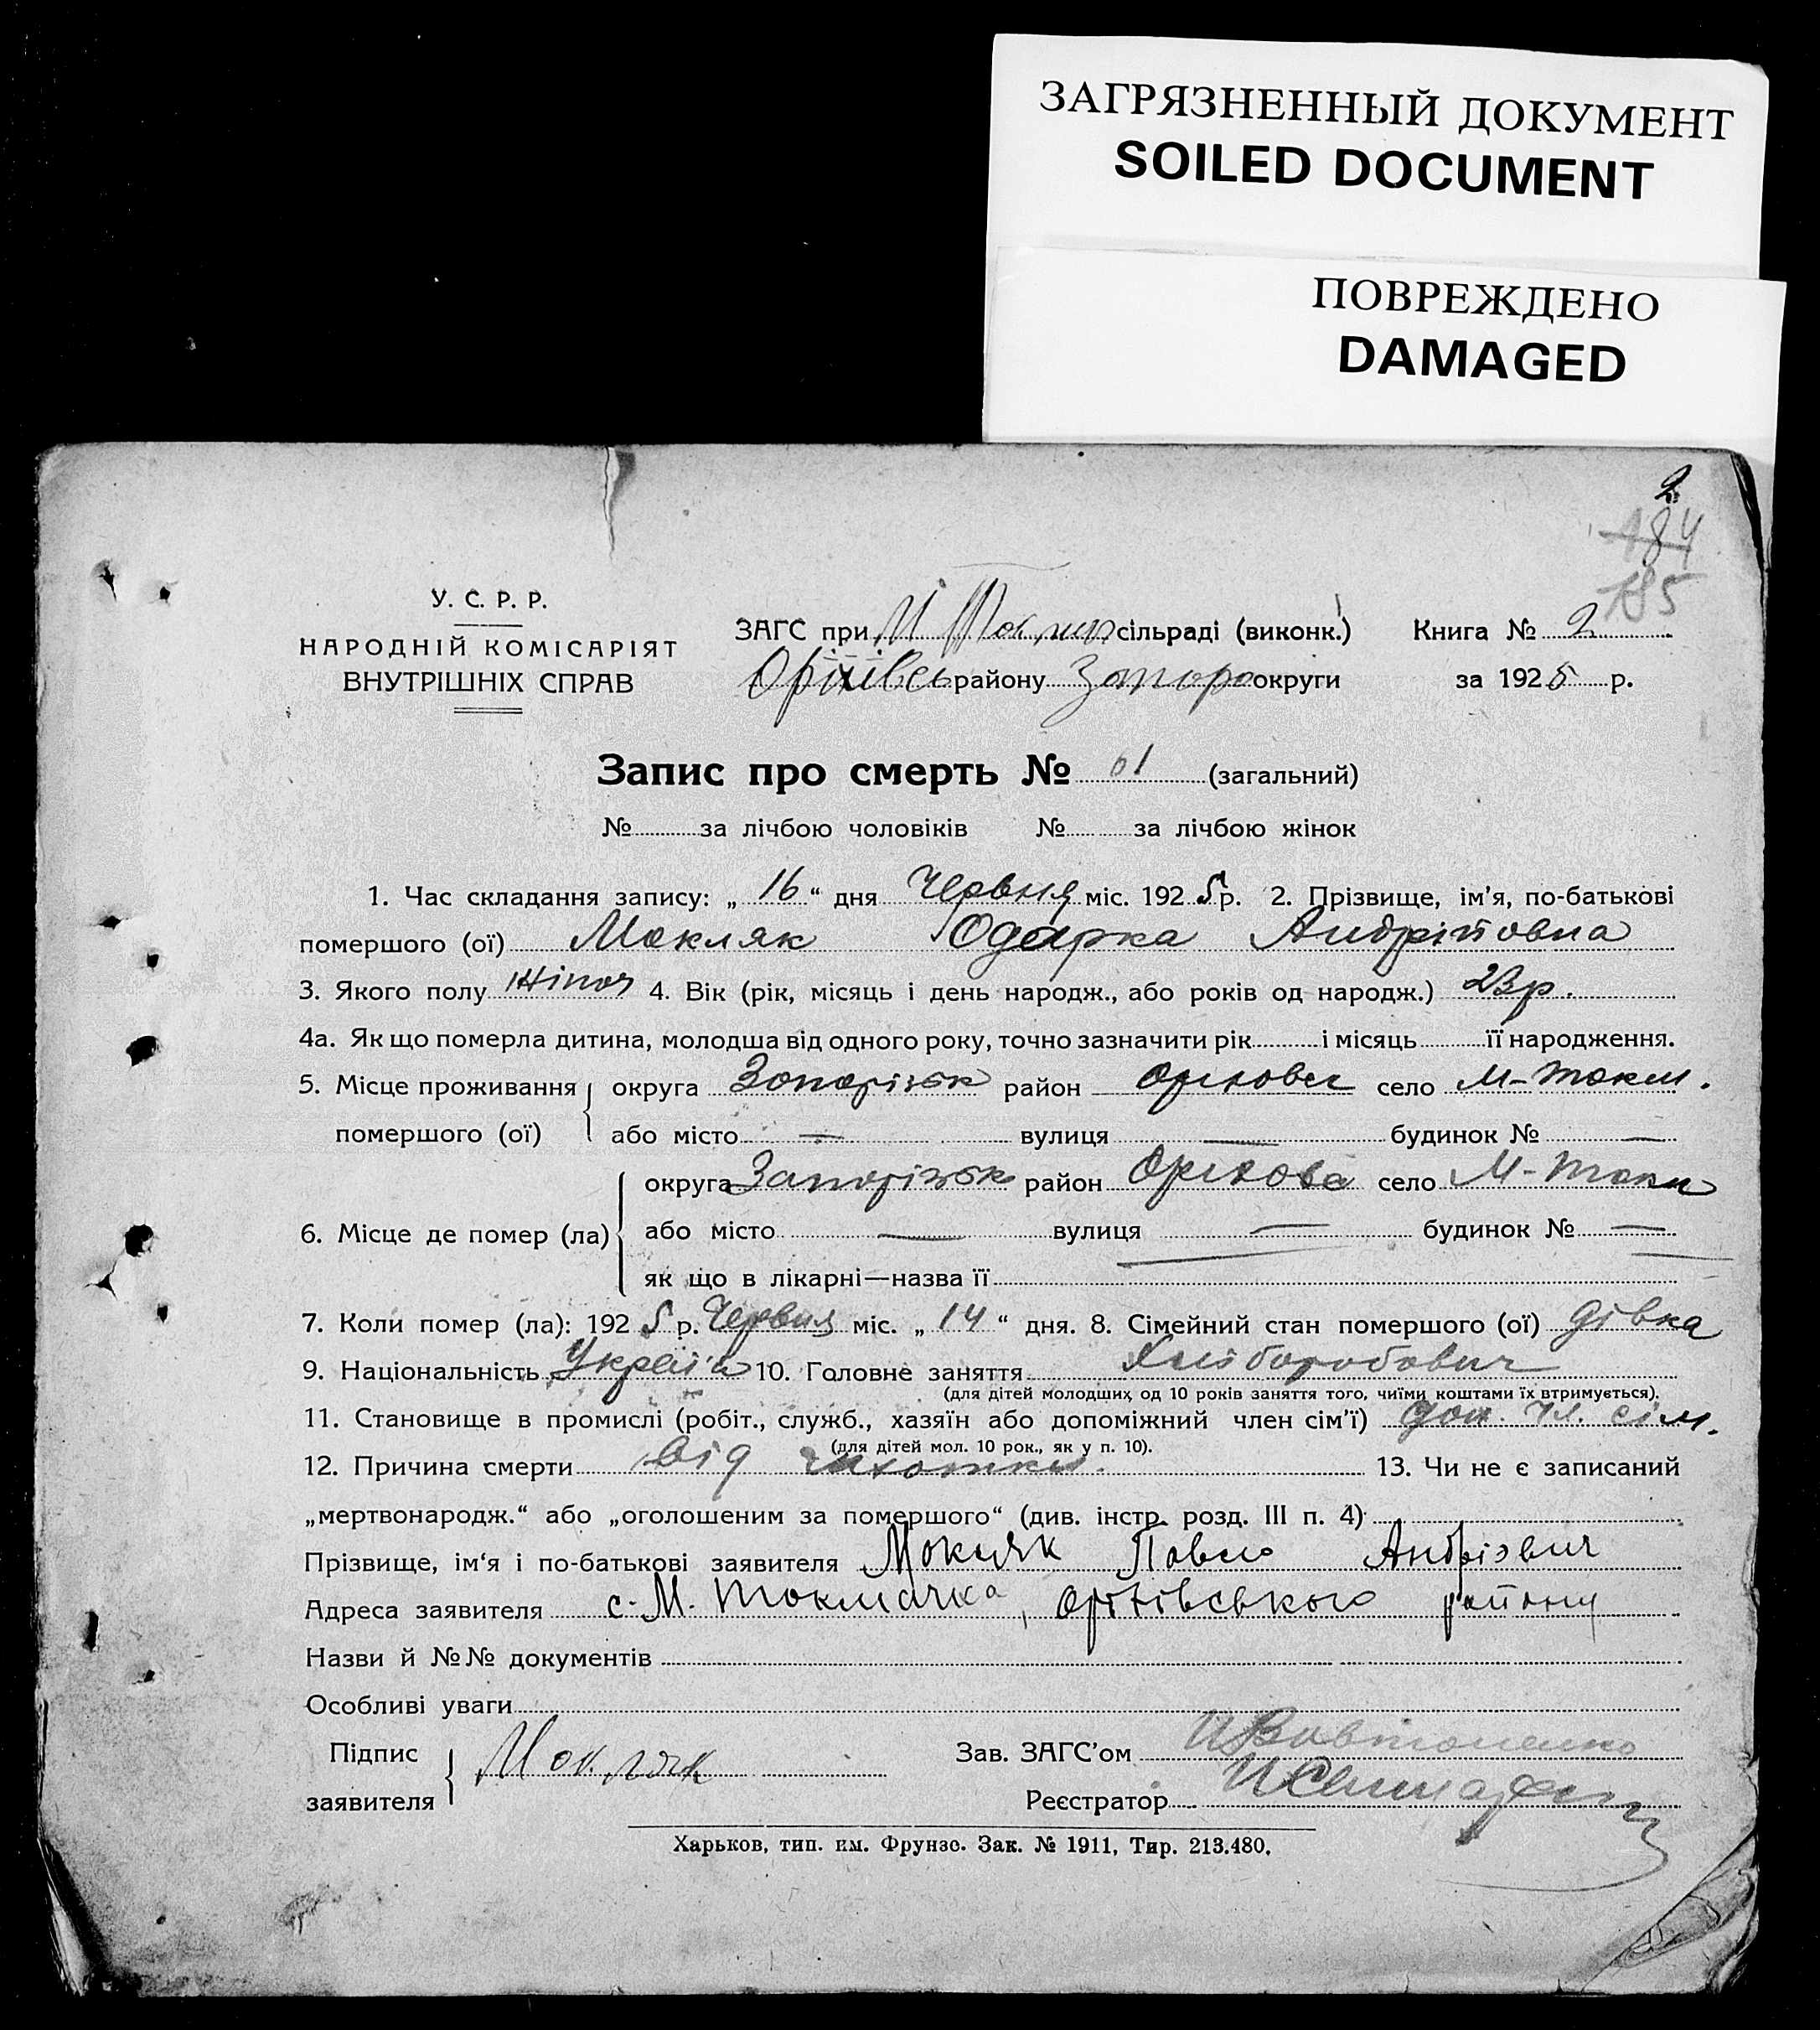 ЗАГРЯЗНЕННЫЙ ДОКУМЕНТ
SOILED DOCUMENT
ПОВРЕЖДЕНО
DAMAGED
2
184
185
У. С. Р. Р.
НАРОДНІЙ КОМІСАРІЯТ
ВНУТРІШНІХ СПРАВ
ЗАГС при М Токмач сільраді (виконк.) Книга № 2
Оріхівсь району Запоро округи за 1925 р.
Запис про смерть № 61 (загальний)
№ за лічбою чоловіків № за лічбою жінок
1. Час складання запису: „16“ дня Червня міс. 1925 р. 2. Прізвище, ім'я, по-батькові
помершого (ої) Мокляк Одарка Андрійовна
3. Якого полу жіноч 4. Вік (рік, місяць і день народж., або років од народж.) 23 р.
4а. Як що померла дитина, молодша від одного року, точно зазначити рік і місяць її народження.
5. Місце проживання округа Запоріжж район Оріхове село М-Токм.
помершого (ої) або місто — вулиця — будинок № —
округа Запоріжж район Оріхове село М-Токм
6. Місце де помер (ла) або місто — вулиця — будинок № —
як що в лікарні—назва її
7. Коли помер (ла): 1925 р. Червня міс. „14“ дня. 8. Сімейний стан помершого (ої) дівка
9. Національність Україн 10. Головне заняття Хліборобович
(для дітей молодших од 10 років заняття того, чиїми коштами їх втримується).
11. Становище в промислі (робіт., служб., хазяїн або допоміжний член сім'ї) доп. чл. сім.
(для дітей мол. 10 рок., як у п. 10).
12. Причина смерти від чихотки. 13. Чи не є записаний
„мертвонародж.“ або „оголошеним за помершого“ (див. інстр. розд. III п. 4)
Прізвище, ім'я і по-батькові заявителя Мокляк Павло Андрієвич
Адреса заявителя с. М. Токмачка, Оріхівського району
Назви й №№ документів
Особливі уваги
Підпис заявителя Мокляк
Зав. ЗАГС'ом
Реєстратор
Харьков, тип. им. Фрунзе. Зак. № 1911, Тир. 213.480.